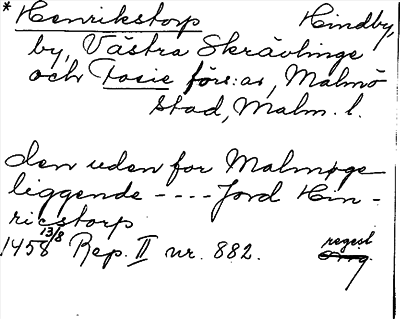 * Henrikstorp Hindby,
by, Västra Skrävlinge
och Fosie förs:ar, Malmö
stad, Malm. l.
den uden for Malmøge
liggende ---- Jord Hin-
ricstorp
1458 13/8 Rep. II nr. 882. regest